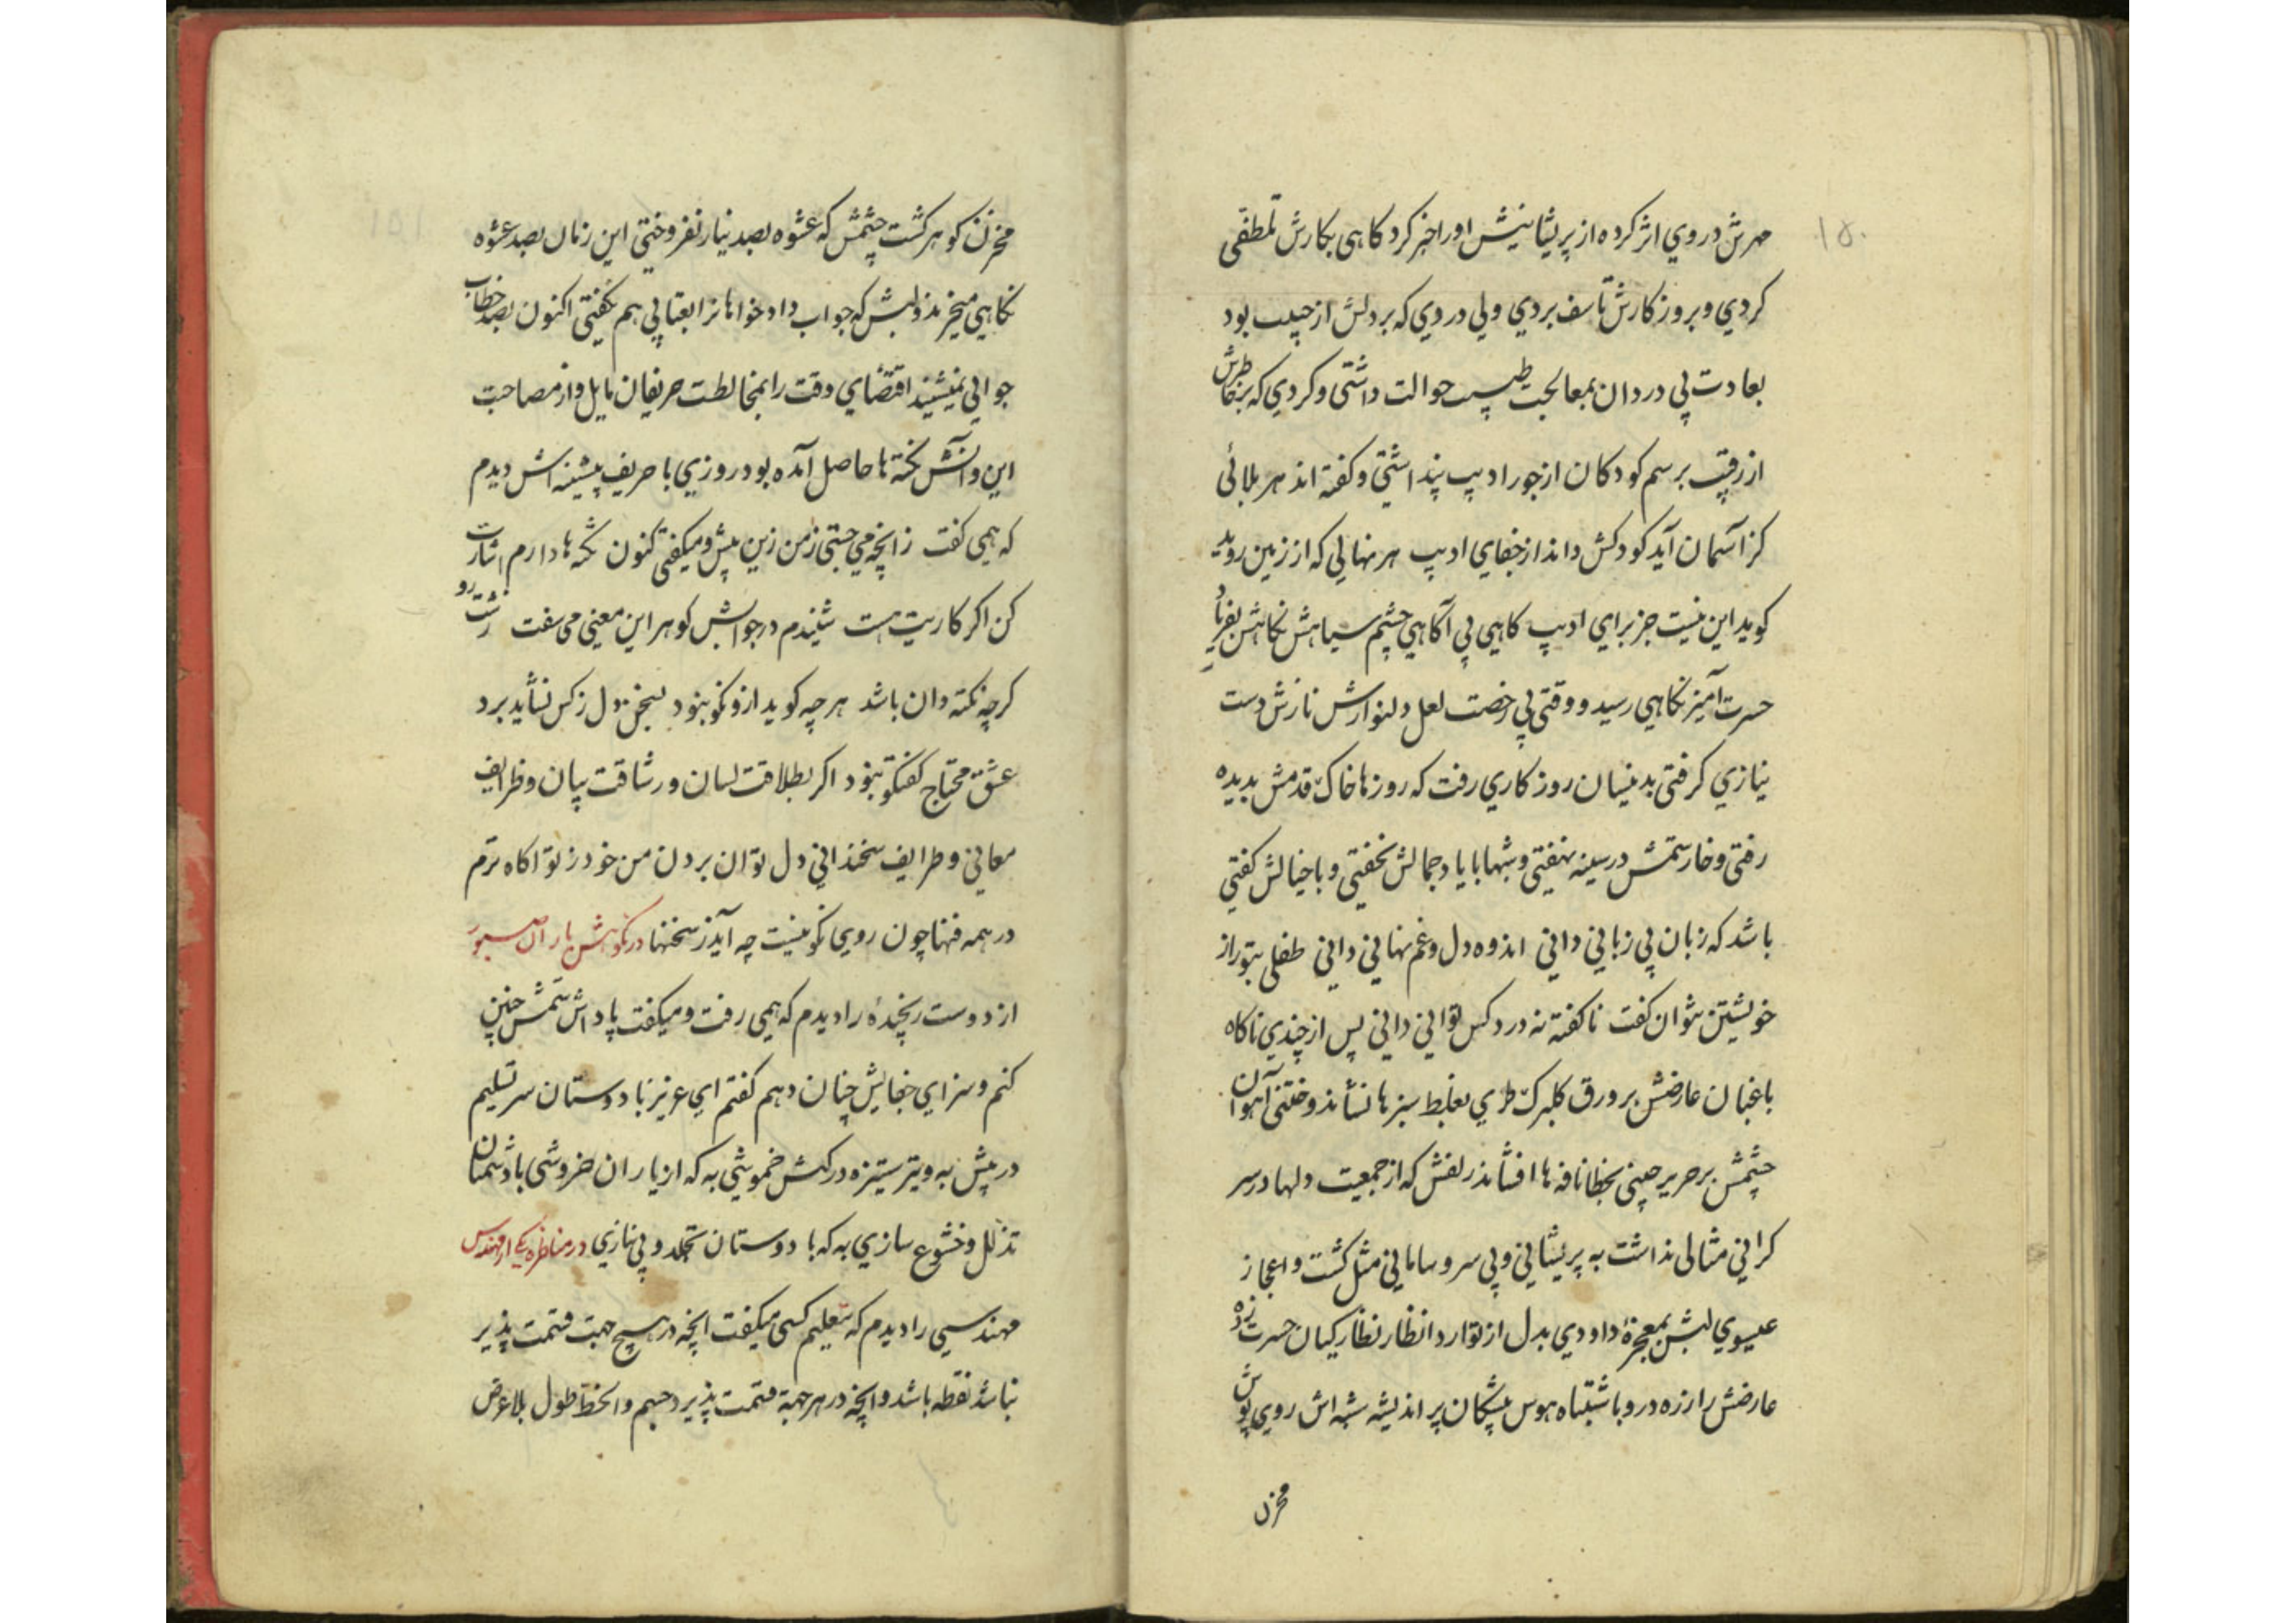 ۱۵۰
مهرش در وي اثر کرده از پریشانیش اورا خبر کرد کاهی بکارش تلطفی
کردي و بروزکارش تأسف بردي ولي دردي که بر دلش از حبیب بود
بعادت بي دردان بمعالجت طبیب حوالت داشتی و کردي که بر خاطرش
از رقیب برسم کودکان از جور ادیب پنداشتی و کفته اند هر بلائی
کز آسمان آید کودکش داند از جفاي ادیب هر نهالي که از زمین روید
کوید این نیست جز براي ادیب کاهي بي آکاهي چشم سیاهش نکاهش بفریاد
حسرت آمیز نکاهي رسید و وقتی بي رخصت لعل دلنوازش نازش دست
نیازي کرفتی بدینسان روزکاري رفت که روزها خاک قدمش بدیده
رفتی و خار ستمش در سینه نهفتی و شبها با یاد جمالش نخفتی و با خیالش کفتی
باشد که زبان بي زباني داني اندوه دل و غم نهاني داني طفلی بتو راز
خویشتن نتوان کفت ناکفته نه درد کس تواني داني پس از چندي ناکاه
باغبان عارضش بر ورق کلبرک طري بغلط سبزها نشاند و ختنی آهوان
چشمش بر حریر چیني بخطا نافه ها افشاند زلفش که از جمعیت دلها در سر
کراني مثالی نداشت به پریشاني و بي سر و ساماني مثل کشت و اعجاز
عیسوي لبش بمعجزۀ داودي بدل از توارد انظار نظارکیان حسرت زده
عارضش را زره در رو باشتباه هوس پیشکان پر اندیشه شبه اش روي پوش
مخزن
مخزن کوهر کشت چشمش که عشوه بصد نیاز نفروختی این زمان بصد عشوه
نکاهي میخرند و لبش که جواب دادخواهانرا بعتابي هم نکفتی اکنون بصد خطاب
جوابي نمیشنید اقتضاي وقت را بمخالطت حریفان مایل و از مصاحبت
این و آنش نکته ها حاصل آمده بود روزي با حریف پیشینه اش دیدم
که همي کفت زانچه مي جستی ز من زین پیش و میکفتی کنون نکته ها دارم اشارت
کن اکر کاریت هست شنیدم در جوابش کوهر این معنی می سفت زشت رو
کرچه نکته دان باشد هر چه کوید ازو نکو نبود بسخن دل ز کس نشاید برد
عشق محتاج کفتکو نبود اکر بطلاقت لسان و رشاقت بیان و ظرایف
معاني و طرایف سخنداني دل توان بردن من خود ز تو آکاه ترم
در همه فنها چون روي نکو نیست چه آید ز سخنها در نکوهش یاران صبور
از دوست رنجیدۀ را دیدم که همي رفت و میکفت پاداش ستمش چنین
کنم و سزاي جفایش چنان دهم کفتم اي عزیز با دوستان سر تسلیم
در پیش به و تیر ستیزه در کیش خموشي به که از یاران خروشی با دشمنان
تذلل و خشوع سازي به که با دوستان تجلد و بي نیازي در مناظره یکي از مهندسین
مهندسي را دیدم که بتعلیم کسی میکفت آنچه در هیچ جهت قسمت پذیر
نباشد نقطه باشد و آنچه در هر جهة قسمت پذیرد جسم و الخط طول بلا عرض
۱۵۱